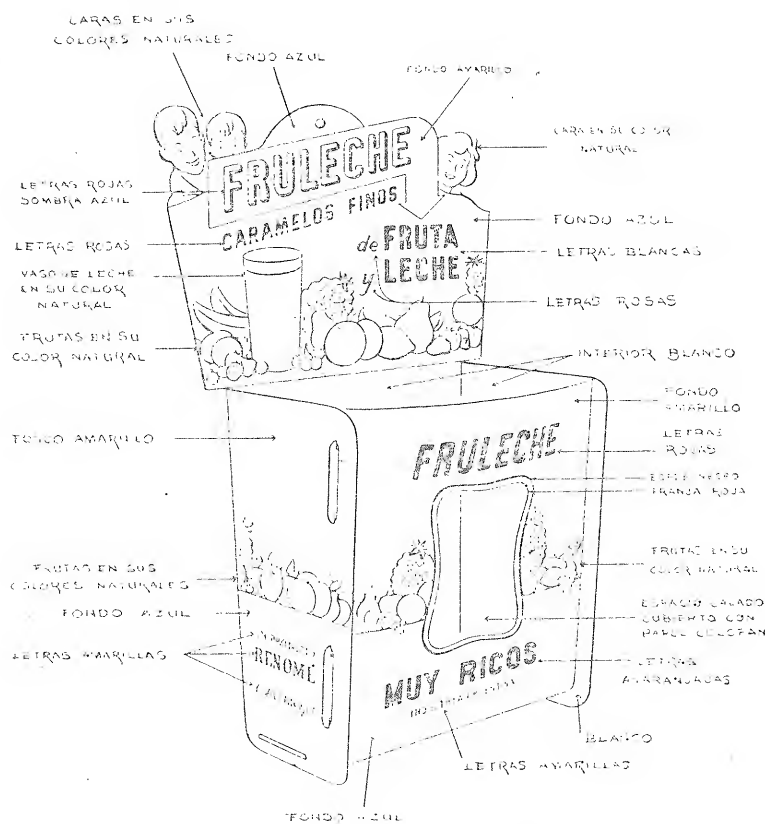 CARAS EN SUS
COLORES NATURALES
FONDO AZUL
FONDO AMARILLO
CARA EN SU COLOR
NATURAL
FRULECHE
LETRAS ROJAS
SOMBRA AZUL
CARAMELOS FINOS
FONDO AZUL
de FRUTA
y LECHE
LETRAS ROSAS
LETRAS BLANCAS
VASO DE LECHE
EN SU COLOR
NATURAL
LETRAS ROSAS
FRUTAS EN SU
COLOR NATURAL
INTERIOR BLANCO
FONDO
AMARILLO
FONDO AMARILLO
LETRAS
ROJAS
FRULECHE
NEGRO
FRANJA ROJA
FRUTAS EN SUS
COLORES NATURALES
FRUTAS EN SU
COLOR NATURAL
FONDO AZUL
ESPACIO CALADO
CUBIERTO CON
PAPEL CELOFAN
LETRAS AMARILLAS
RENOMÉ
MUY RICOS
LETRAS
ANARANJADAS
BLANCO
LETRAS AMARILLAS
FONDO AZUL